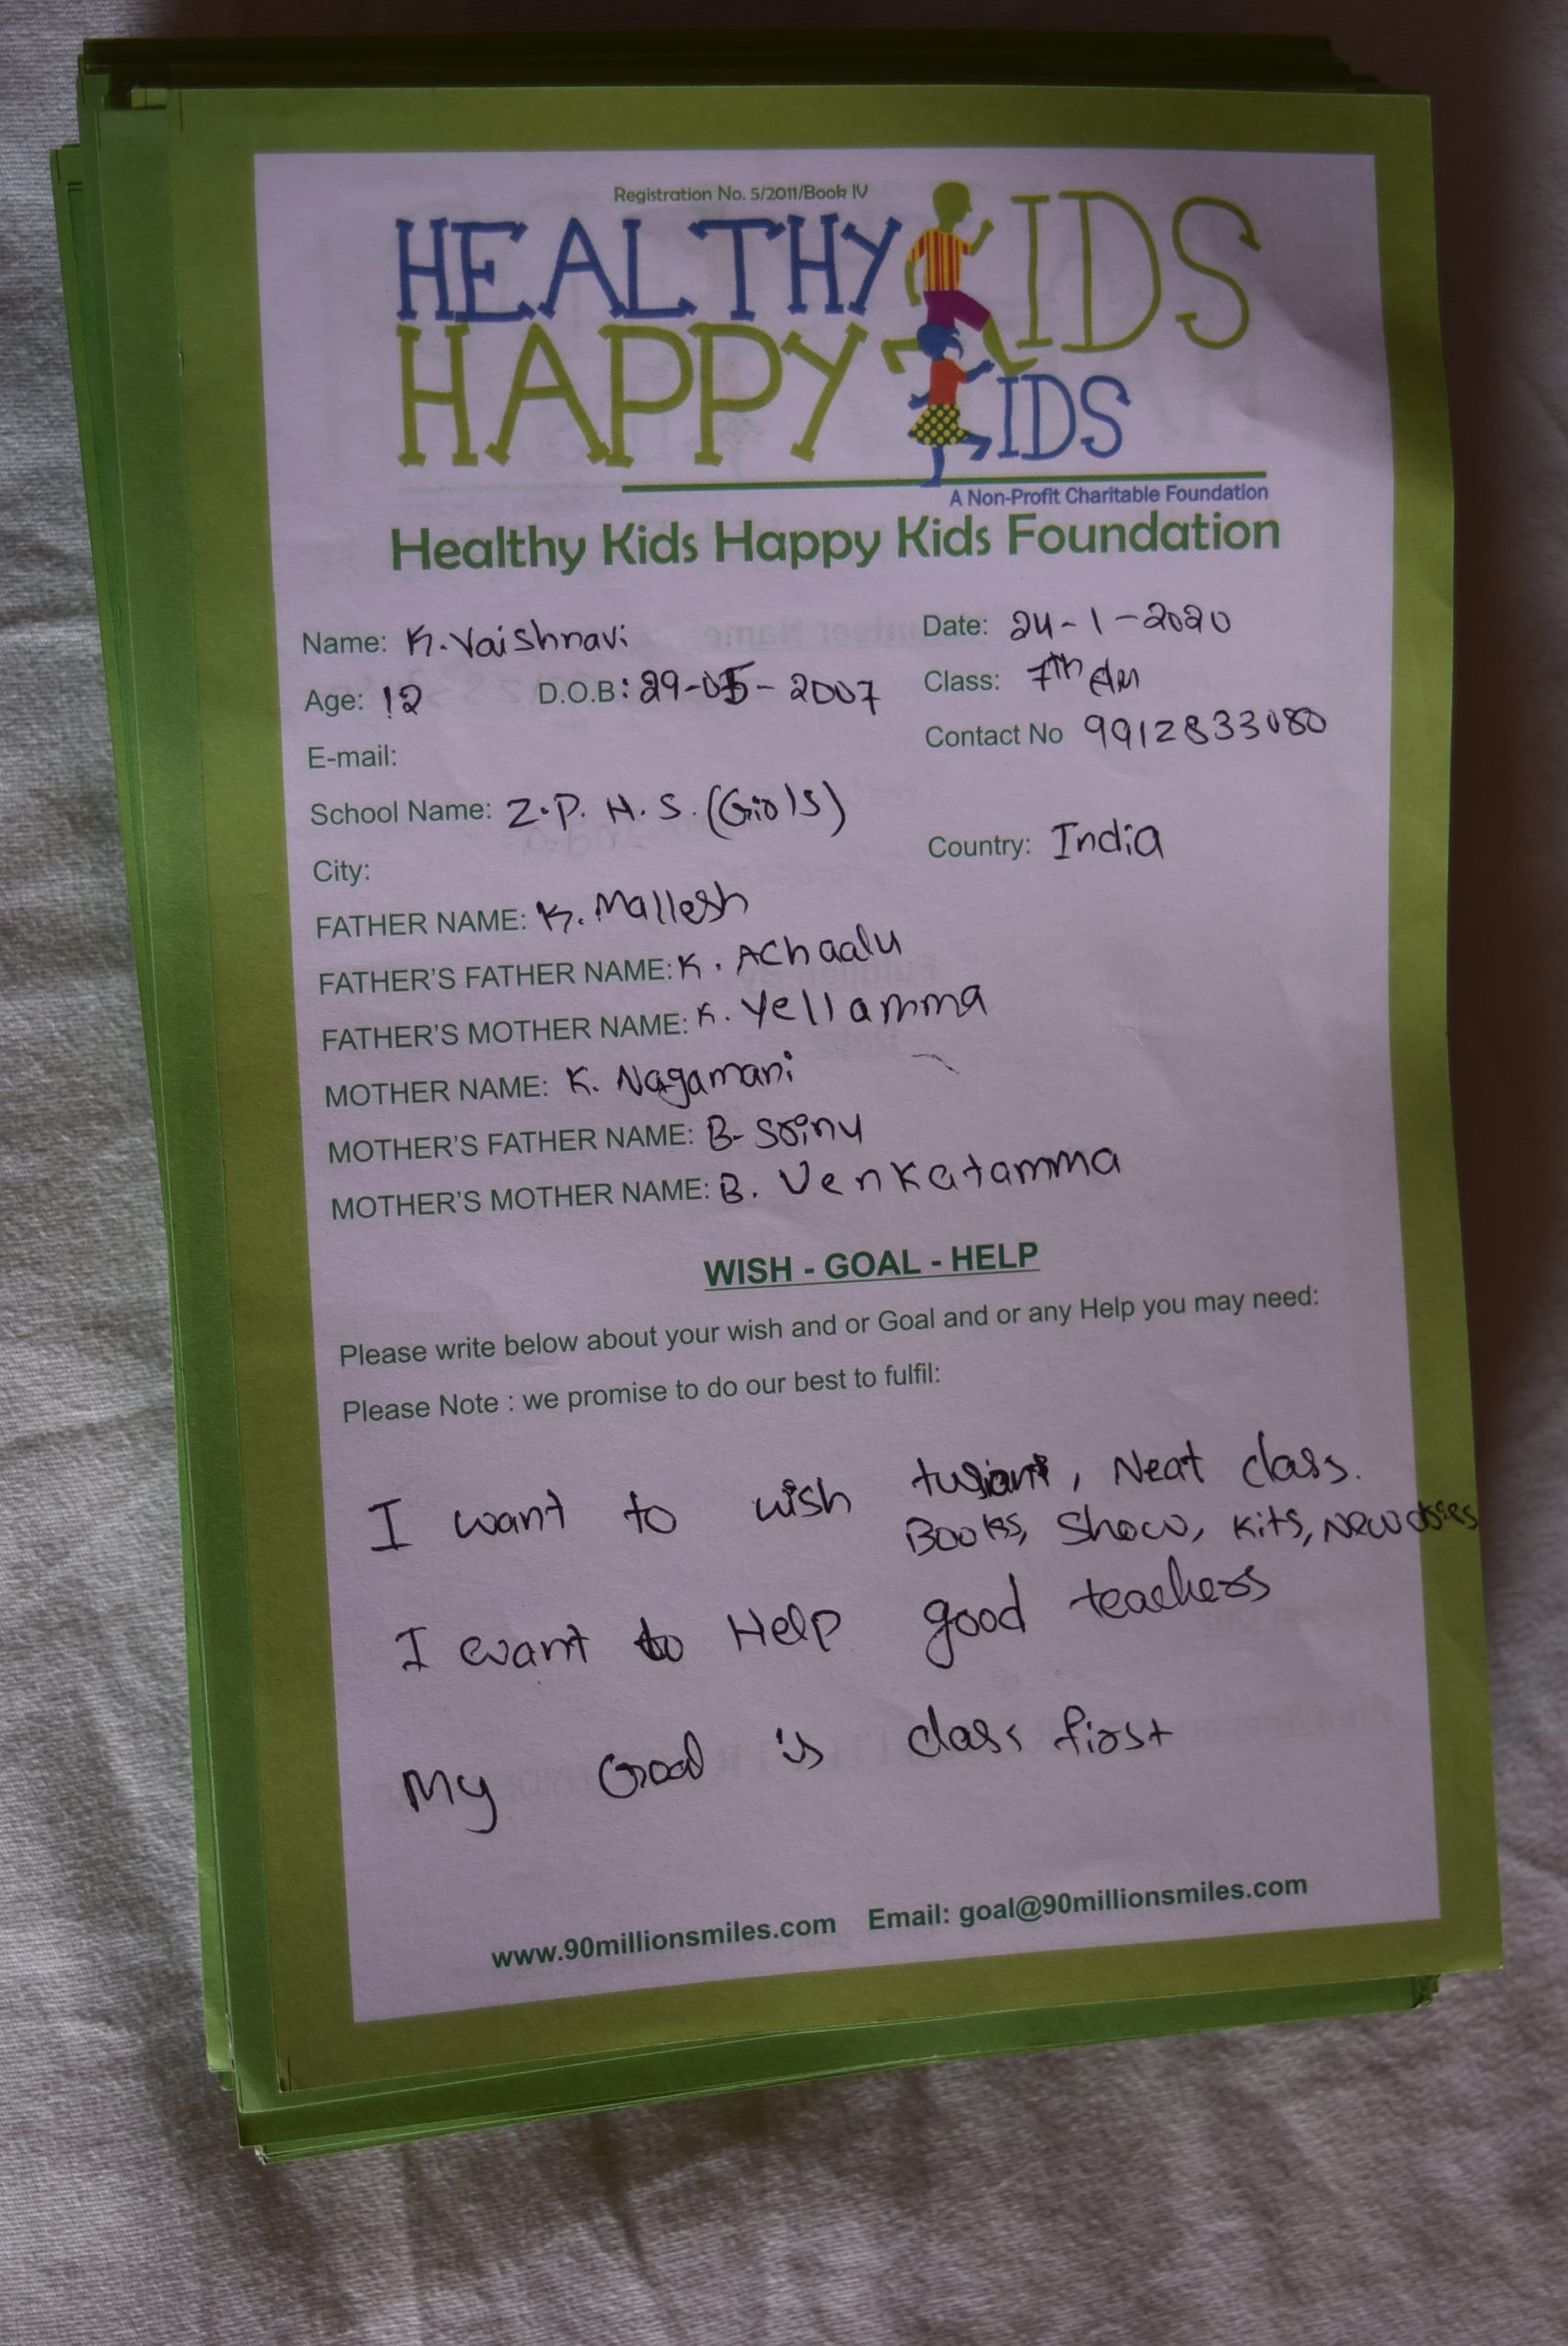 Registration No. 5/2011/Book IV
HEALTHY KIDS
HAPPY KIDS
A Non-Profit Charitable Foundation
Healthy Kids Happy Kids Foundation
Name: K. Vaishnavi Date: 24-1-2020
Age: 12 D.O.B: 29-05-2007 Class: 7th
E-mail: Contact No 9912833080
School Name: Z.P. H.S. (Giols)
City: Country: India
FATHER NAME: K. Mallesh
FATHER'S FATHER NAME: K. AChaalu
FATHER'S MOTHER NAME: K. Yellamma
MOTHER NAME: K. Nagamani
MOTHER'S FATHER NAME: B- Soinu
MOTHER'S MOTHER NAME: B. Venkatamma
WISH - GOAL - HELP
Please write below about your wish and or Goal and or any Help you may need:
Please Note : we promise to do our best to fulfil:
I want to wish , Neat class.
Books, Show, Kits, New
I want to Help good teachers
My Goal is class fiost
www.90millionsmiles.com Email: goal@90millionsmiles.com